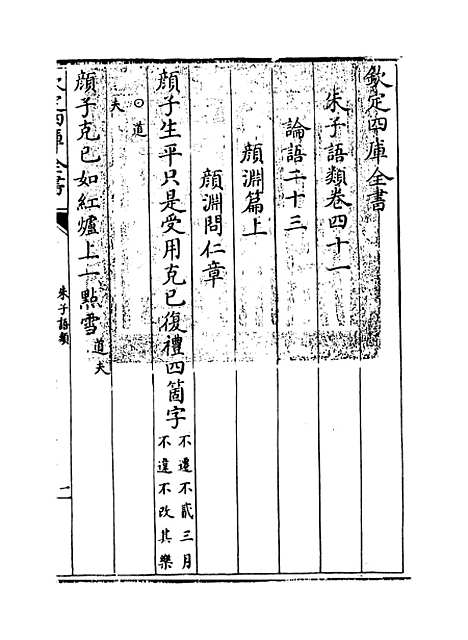 欽定四庫全書
朱子語類卷四十一
論語二十三
顔淵篇上
顔淵問仁章
顔子生平只是受用克已復禮四箇字不遷不貳三月不違不改其樂
○道夫
顔子克已如紅爐上一點雪道夫
欽定四庫全書
朱子語類